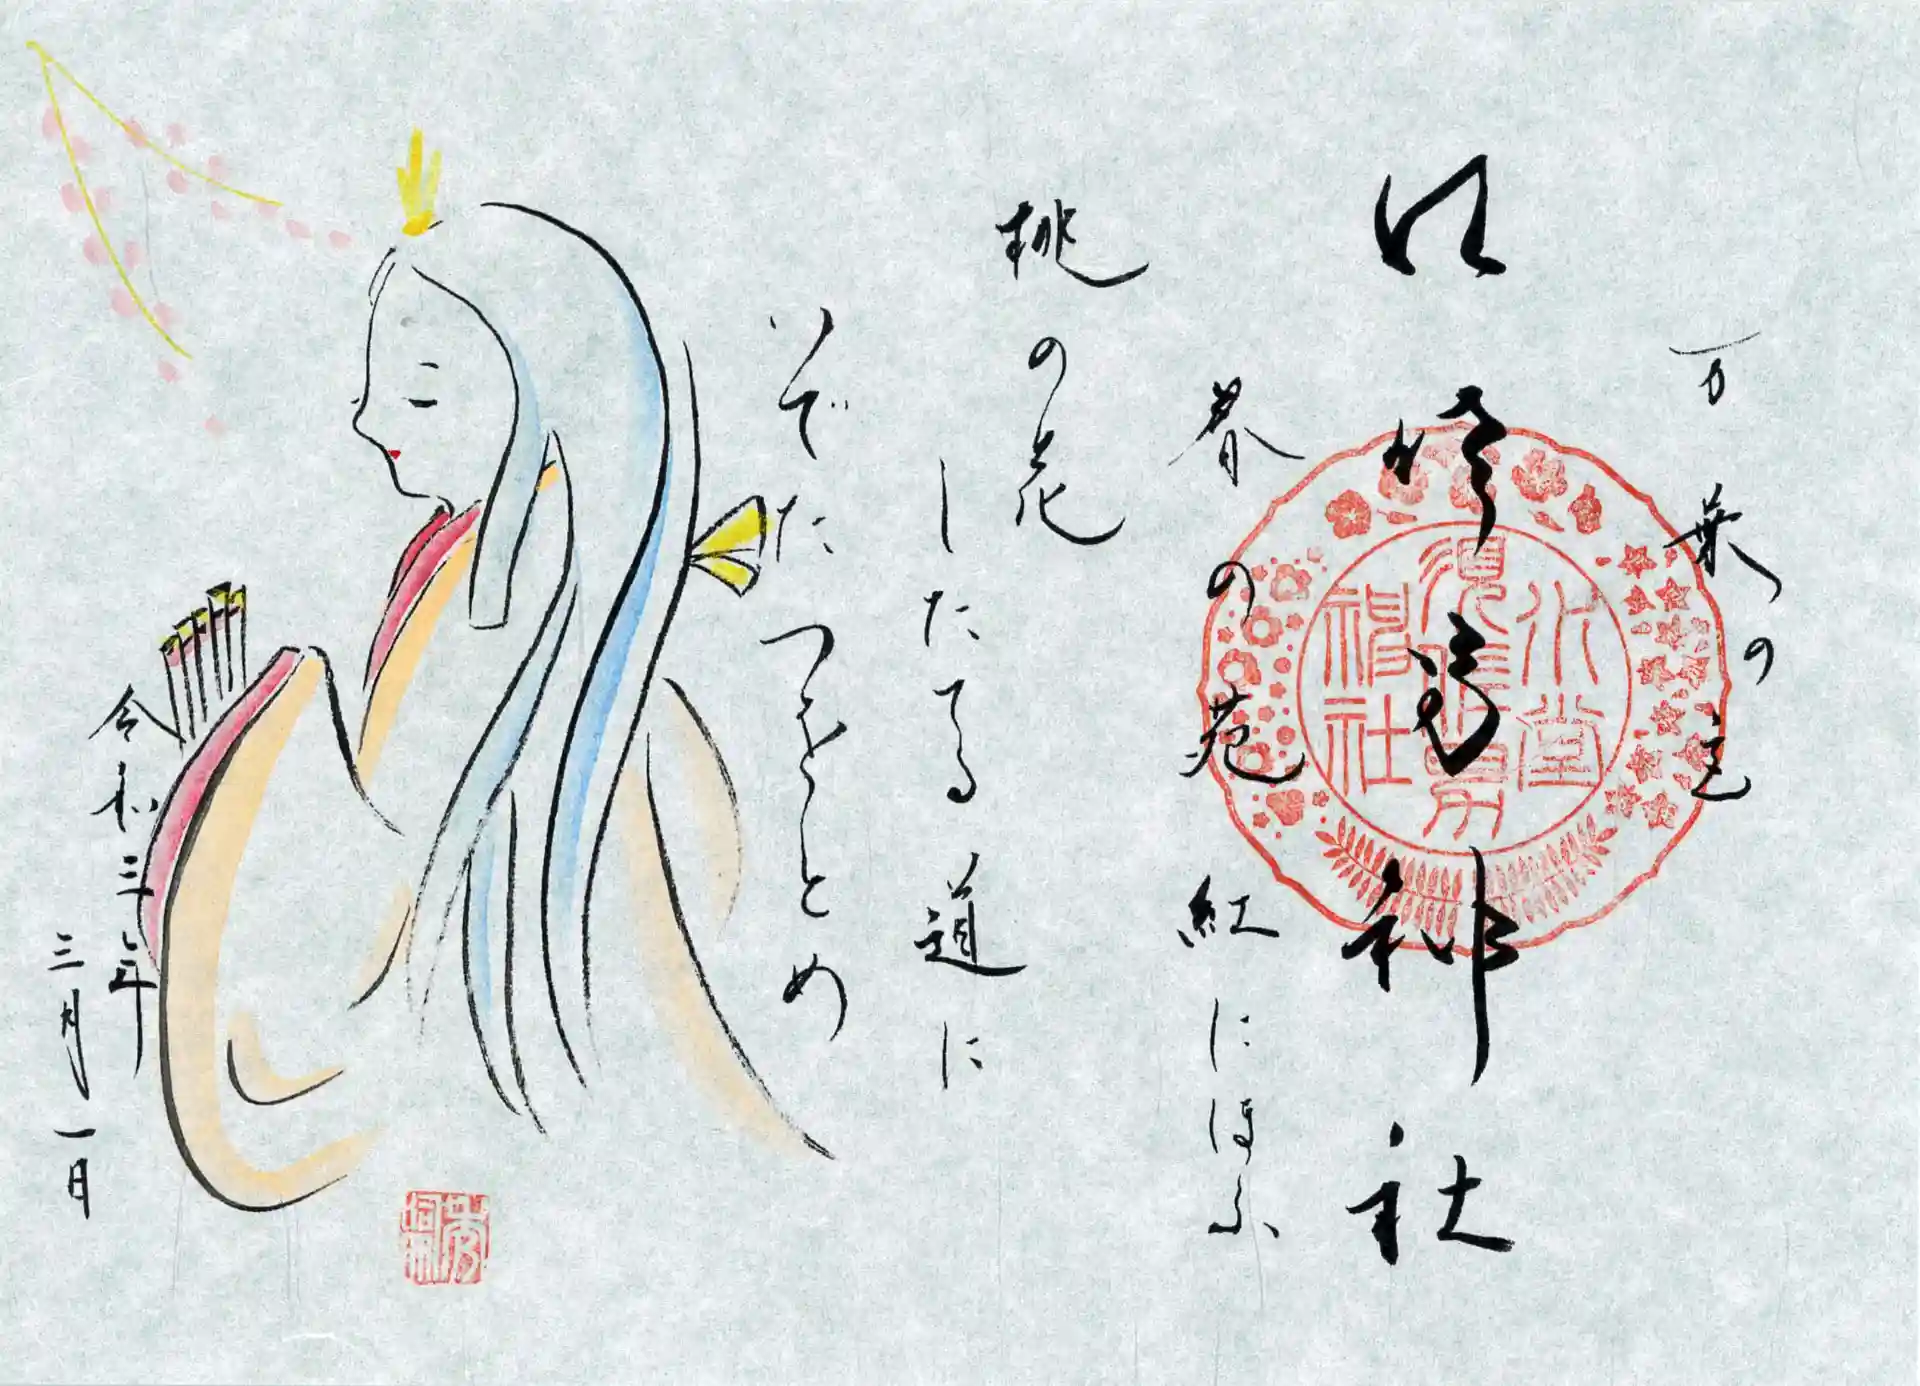 万葉の
須佐男神社
春の苑紅にほふ
桃の花
したてる道に
いでたつをとめ
令和三年
三月一日
水堂
須佐男
神社